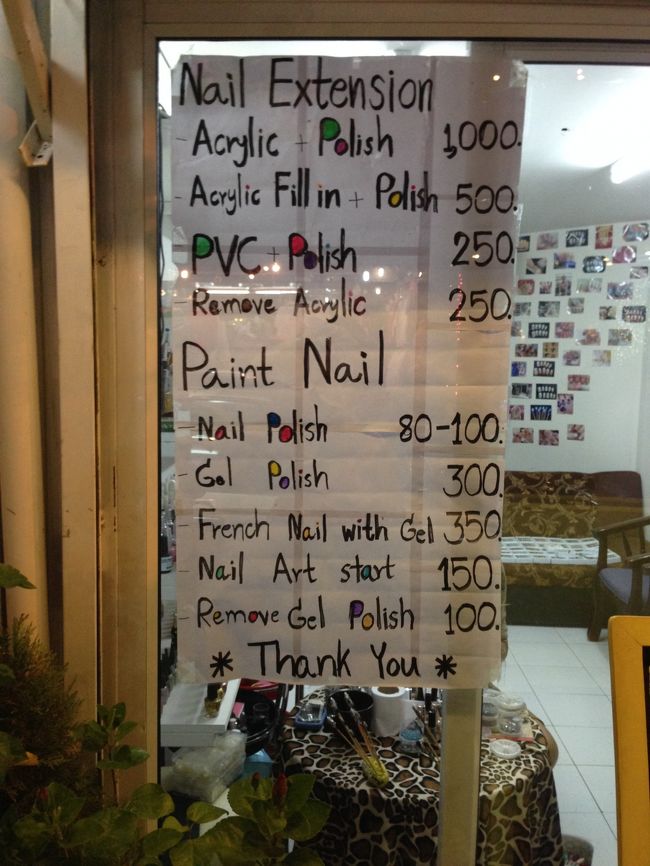 Nail Extension
- Acrylic + Polish 1,000.
- Acrylic Fill in + Polish 500.
- PVC + Polish 250.
- Remove Acrylic 250.
Paint Nail
- Nail Polish 80-100.
- Gel Polish 300.
- French Nail with Gel 350
- Nail Art start 150.
- Remove Gel Polish 100.
* Thank You *